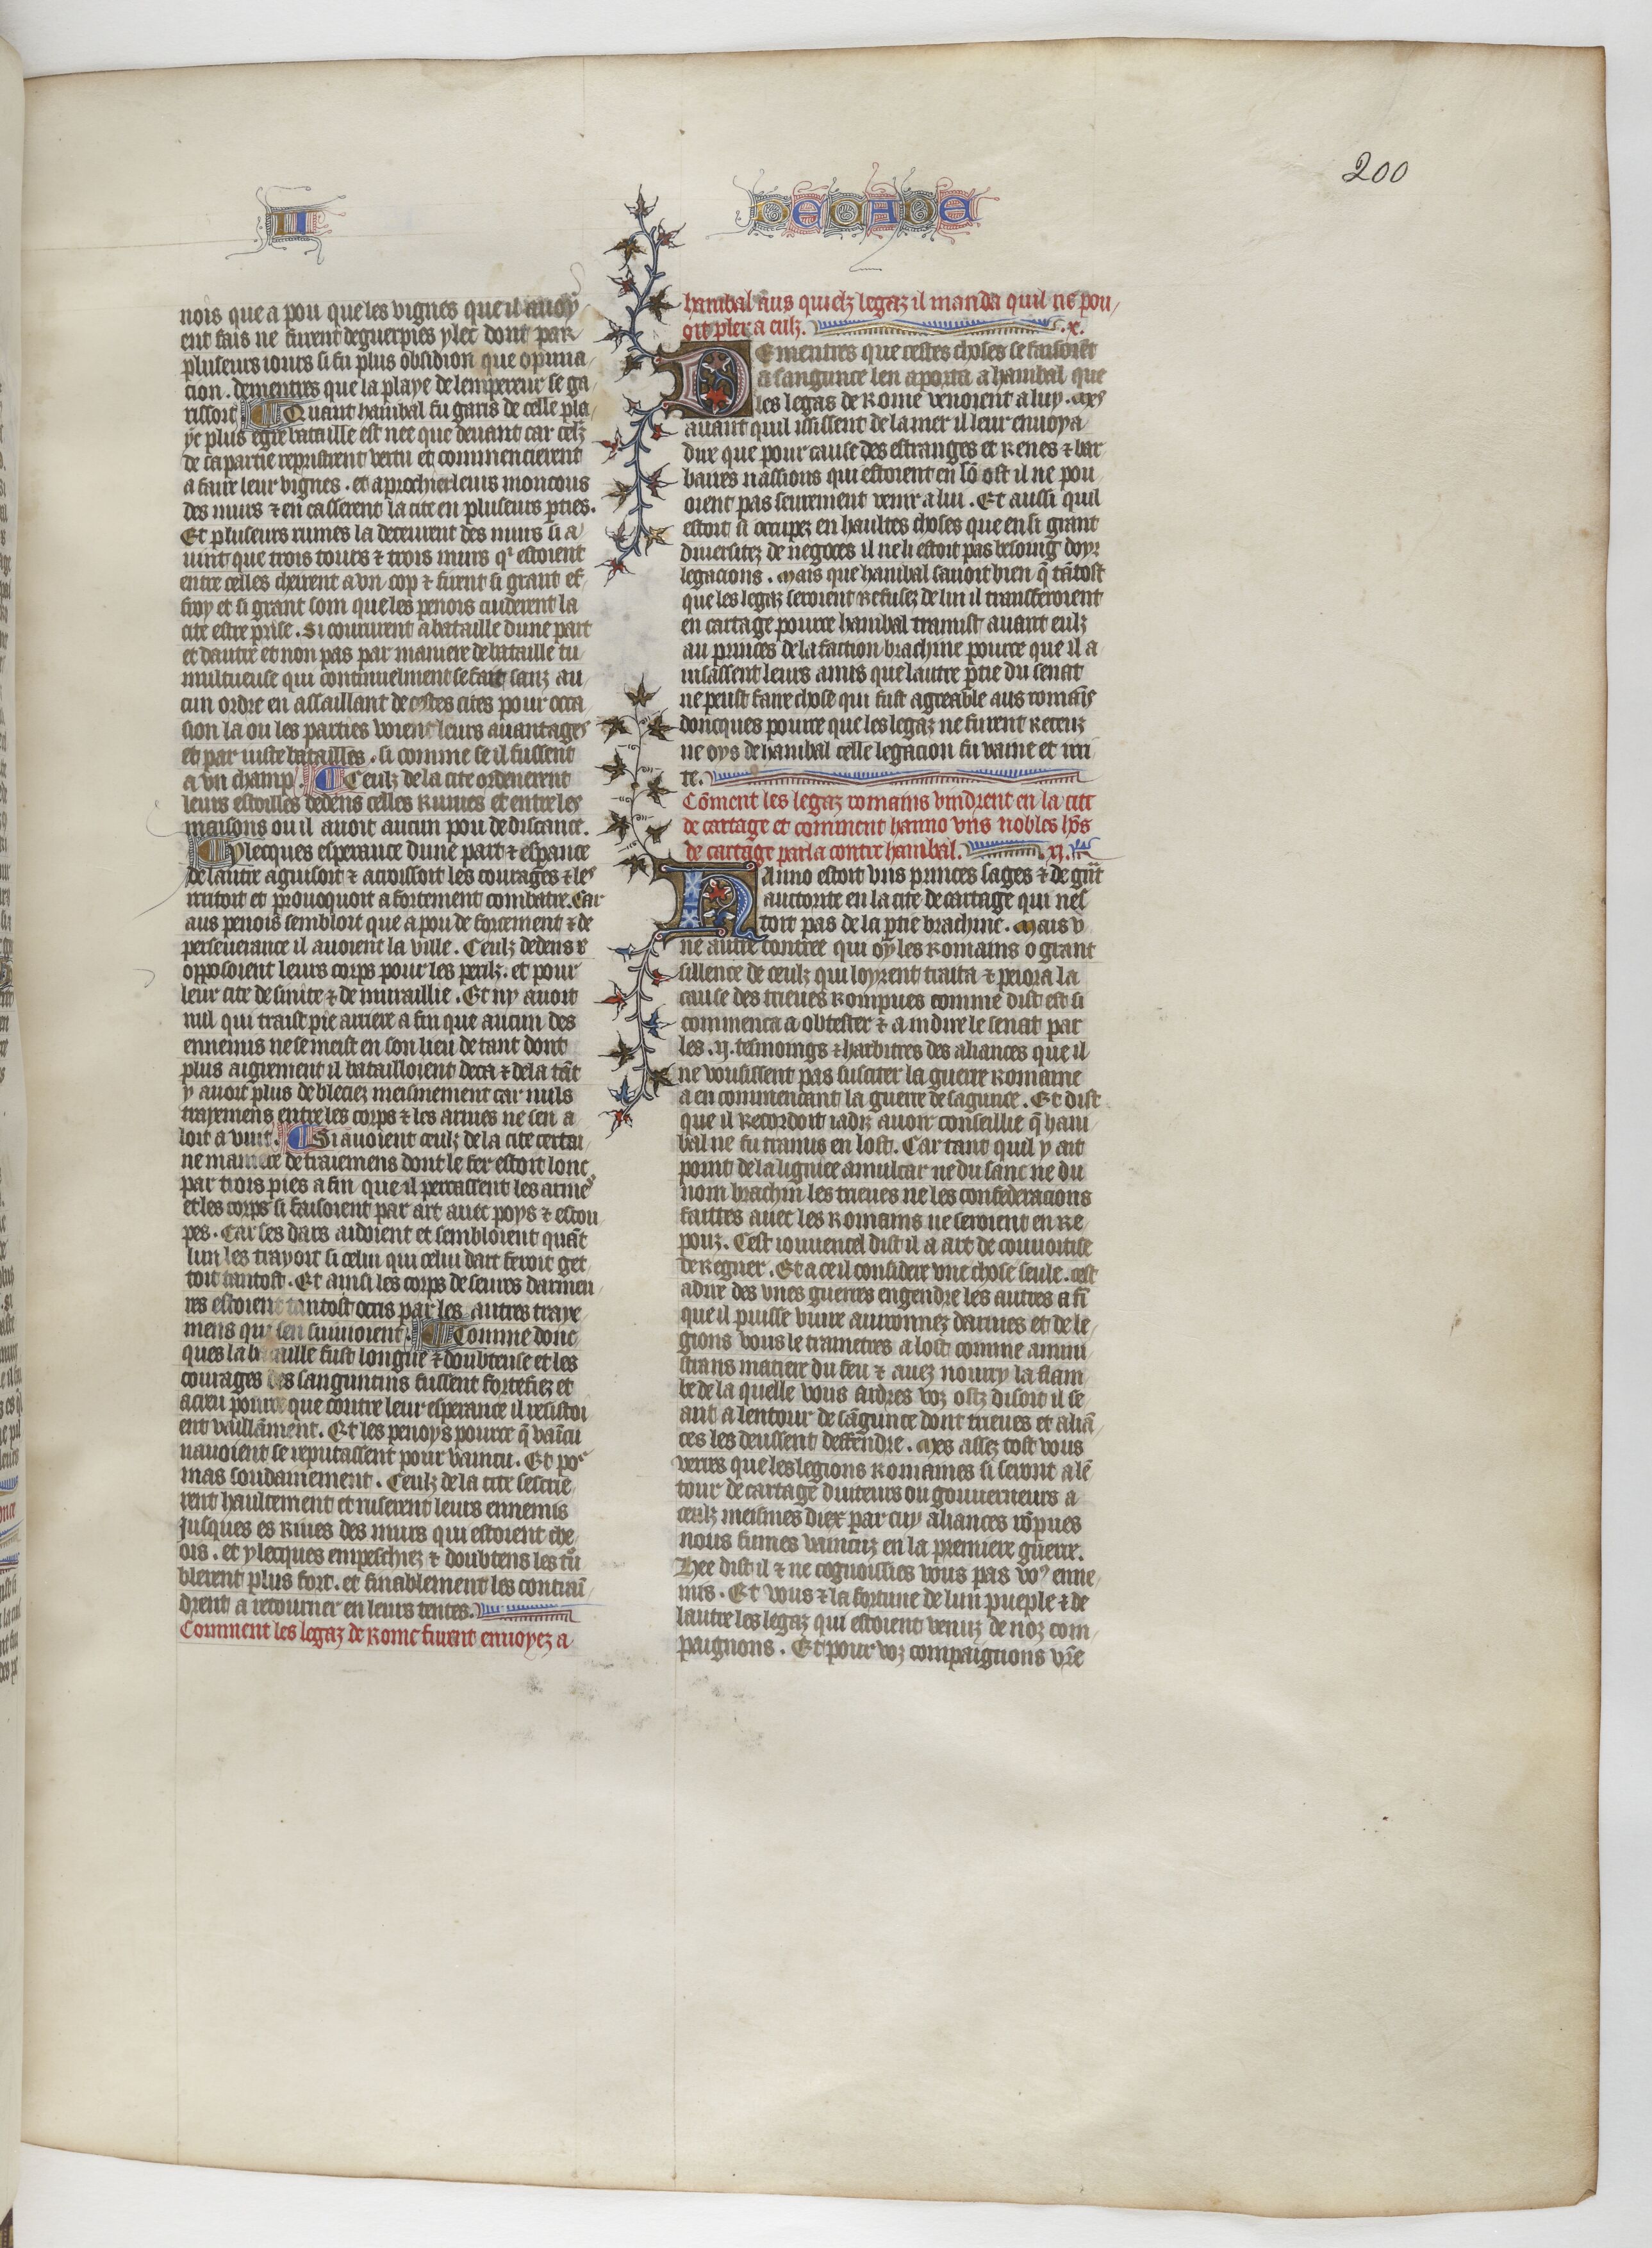 200
II
DECADE
nois que a pou que les vignes que il auoy
ent fais ne furent deguerpies ylec dont par
pluseurs iours si fu plus obsidion que opuna
cion . dementres que la playe de lempereur se ga
rissoit Quant hanibal fu garis de celle pla
ye plus egre bataille est nee que deuant car celz
de sa partie repristrent vertu et commencierent
a faire leur vignes . et aprochier leurs moncous
des murs ⁊ en casserent la cite en pluseurs p̃ties.
Et pluseurs ruines la deceurent des murs si a
uint que trois tours ⁊ trois murs qͥ estoient
entre celles cheirent a vn cop ⁊ firent si grant ef
froy et si grant som que les penois cuiderent la
cite estre prise . Si coururent a bataille dune part
et dautre et non pas par maniere de bataille tu
multueuse qui continuelment se fait sanz au
cun ordre en assaillant de cestes cites pour occa
sion la ou les parties voient leurs auantages
et par iuste batailles . si comme se il fussent
a vn champ . Ceulz de la cite ordenerent
leurs estoilles dedens celles ruines et entre les
maisons ou il auoit aucun pou de distance.
Ylecques esperance dune part ⁊ espance
de lautre aguisoit ⁊ accoissoit les courages ⁊ les
irritoit et prouoquoit a fortement combatre. Car
aus penois sembloit que a pou de forcement ⁊ de
perseuerance il auoient la ville . Ceulz dedens r
opposoient leurs corps pour les perilz . et pour
leur cite desinite ⁊ de muraillie . Et ny auoit
nul qui traist pie arriere a fin que aucun des
ennemis ne se meist en son lieu de tant dont
plus aigrement il batailloient deca ⁊ dela tãt
y auoit plus de bleciez meismement car nuls
trayemens entre les corps ⁊ les armes ne sen a
loit a vuit . Si auoient ceulz de la cite certai
ne maniere de traiemens dont le fer estoit lonc
par trois pies a fin que il percassent les armes
et les corps si faisoient par art auec poys ⁊ estou
pes . Car ses dars aidoient et sembloient quãt
lun les trayoit si celui qui celui dart feroit get
toit tantost . Et ainsi les corps de seures darmeu
res estoient tantost occis par les autres traye
mens qui sen suiuoient . Comme donc
ques la bataille fust longue ⁊ doubteuse et les
courages des saguntins fussent fortefiez et
acreu pource que contre leur esperance il resistoi
ent vaillãment . Et les penoys pource q̃ vaincu
nauoient se reputassent pour vaincu . Et po
mas soudainement . Ceulz de la cite sescrie
rent haultement et ruserent leurs ennemis
jusques es Riues des murs qui estoient che
ois . et ylecques empeschiez ⁊ doubtens les tũ
blerent plus fort . et finablement les contrai
drent a retourner en leurs tentes.
Comment les legaz de Rome furent enuoyez a
hanibal aus quielz legaz il manda quil ne pou
oit pler a eulz. .x.
Dementres que cestes choses se faisoiẽt
a sangunce len aporta a hanibal que
les legas de Rome venoient a luy . Mes
auant quil ississent de la mer il leur enuoya
dire que pour cause des estranges et Renes ⁊ bar
baires nassions qui estoient en sõ ost il ne pou
oient pas seurement venir a lui . Et aussi quil
estoit si occupez en haultes choses que en si grant
diuersitez de negoces il ne li estoit pas besoing doyr
legacions . Mais que hanibal sauoit bien q̃ tãtost
que les legaz seroient Refusez de lui il transferoient
en cartage pource hanibal tramist auant eulz
au princes de la faction brachine pource que il a
uisassent leurs amis que lautre p̃tie du senat
ne peust faire chose qui fust agreable aus romais
doncques pource que les legaz ne furent Receuz
ne oys de hanibal celle legacion fu vaine et irri
te.
Cõment les legaz romains vindrent en la cite
de cartage et comment hanno vns nobles hõs
de cartage parla contre hanibal. .xi.
Hanno estoit vns princes sages ⁊ de grãt
auctorite en la cite de cartage qui nes
toit pas de la p̃tie brachine . Mais v
ne autre contree qui oy les Romains o grant
sillence de ceulz qui loyrent traita ⁊ periora la
cause des trieues Rompues comme dist est si
commenca a obtester ⁊ a indire le senat par
les .ij. tesmoings ⁊ harbitres des aliances que il
ne vousissent pas susciter la guerre Romaine
a en commencant la guerre de sagunce . Et dist
que il Recordoit iadiz auoir conseillie q̃ hani
bal ne fu tramis en lost . Car tant quil y ait
point de la lignice amulcar ne du sanc ne du
nom brachin les trieues ne les confederacions
faittes auec les Romains ne seroient en Re
pouz . Cest iouuencel dist il a art de couuoitise
de Regner . Et a ce il considere vne chose seule . cest
adire des vnes guerres engendre les autres a fi
que il puisse viure auironnez darmes et de le
gions vous le trametres a lost comme amini
strans matiere du feu ⁊ auez nourry la flam
be de la quelle vous ardres voz ostz disoit il se
ant a lentour de sãgunce dont trieues et aliã
ces les deussent deffendre . Mes assez tost vous
verres que les legions Romaines si seront a lẽ
tour de cartage duiteurs ou gouuerneurs a
ceulz meismes diex par cuy aliances rõpues
nous fumes vaincuz en la premiere guerre.
Hee dist il ⁊ ne cognoissies vous pas vo⁹ enne
mis . Et vous ⁊ la fortune de lun pueple ⁊ de
lautre les legaz qui estoient venuz de noz com
paignons . Et pour voz compaignons vr̃e